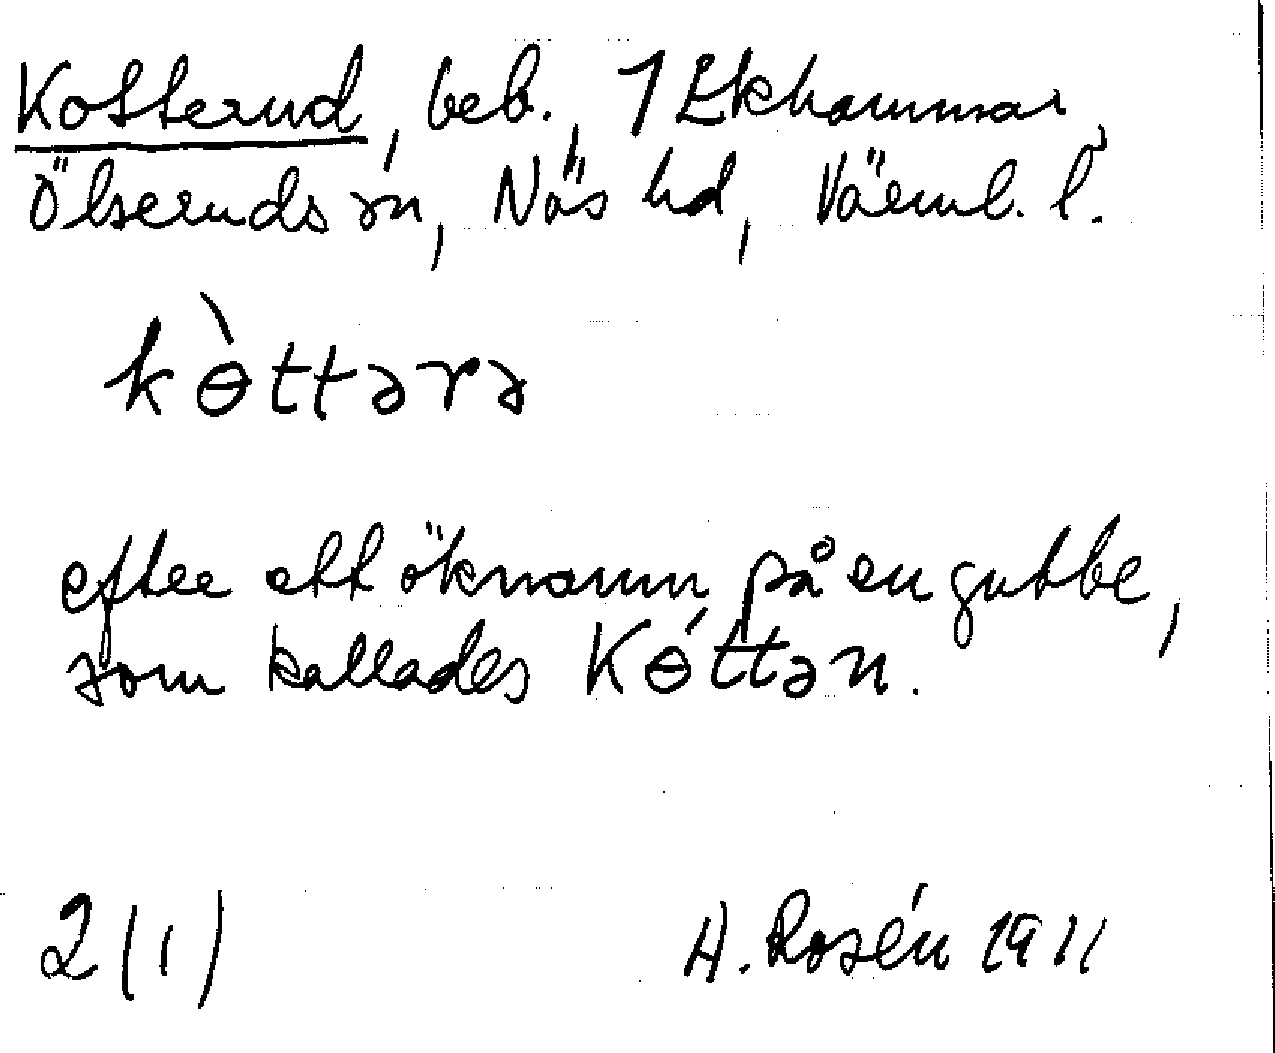 Kotterud, beb., 1 Ekhammar,
Ölseruds sn, Näs hd, Värml. l.
kɵ̀ttərə
efter ett öknamn på en gubbe,
som kallades Kɵ́ttən.
2(1) A. Rosén 1911